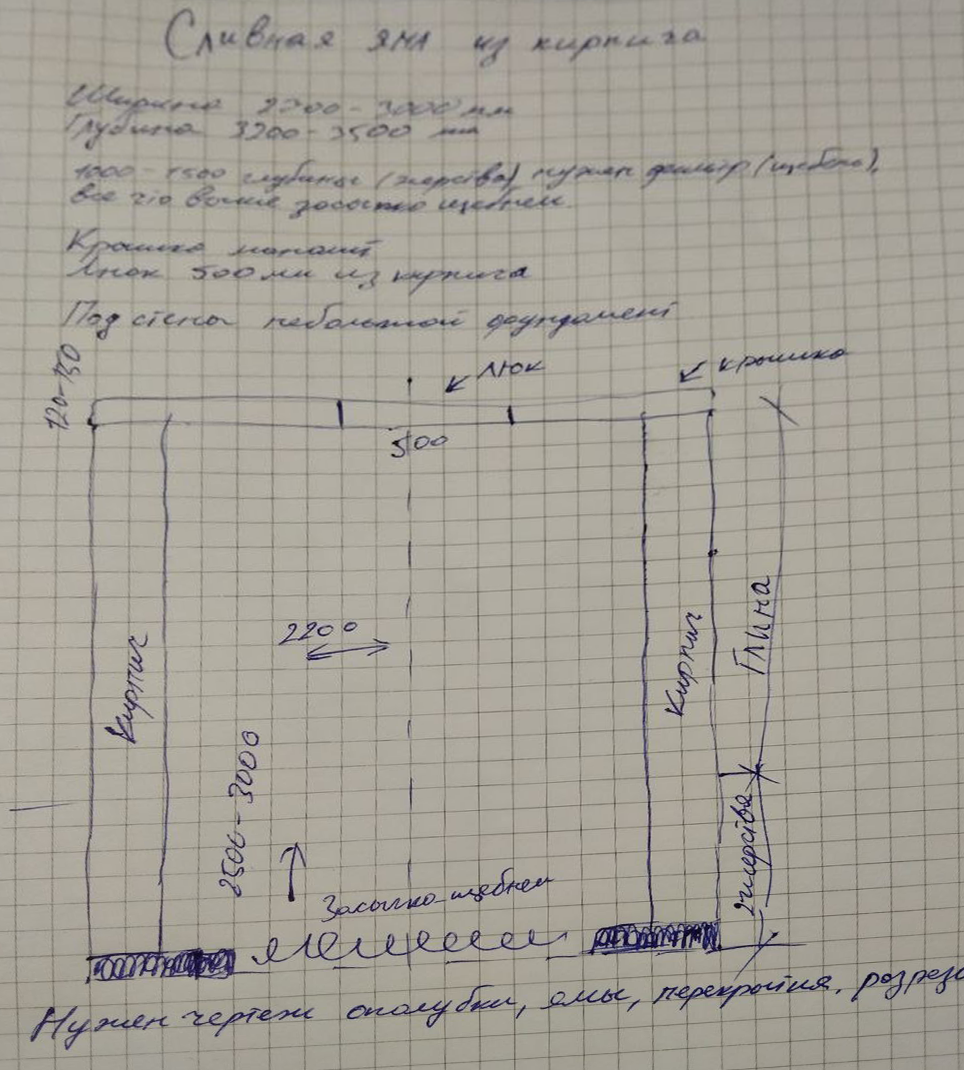 Сливная яма из кирпича
Ширина 2200-3000 мм
Глубина 3200-3500 мм
1000-1500 глубины (жерства), нужен фильтр (щебень),
все что выше засыпка щебнем.
Крышка монолит
Люк 500 мм из кирпича
Под стены небольшой фундамент
120-150
люк
крышка
500
2200
Кирпич
Кирпич
Глина
2500-3000
жерства
Засыпка щебнем
Нужен чертеж опалубки, ямы, перекрытия, разрез